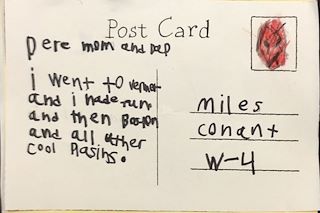 Post Card
Dere mom and Dad
i went to vermet
and i made fun.
and then Boston
and all other
cool Plasins.
Miles
conant
W-4